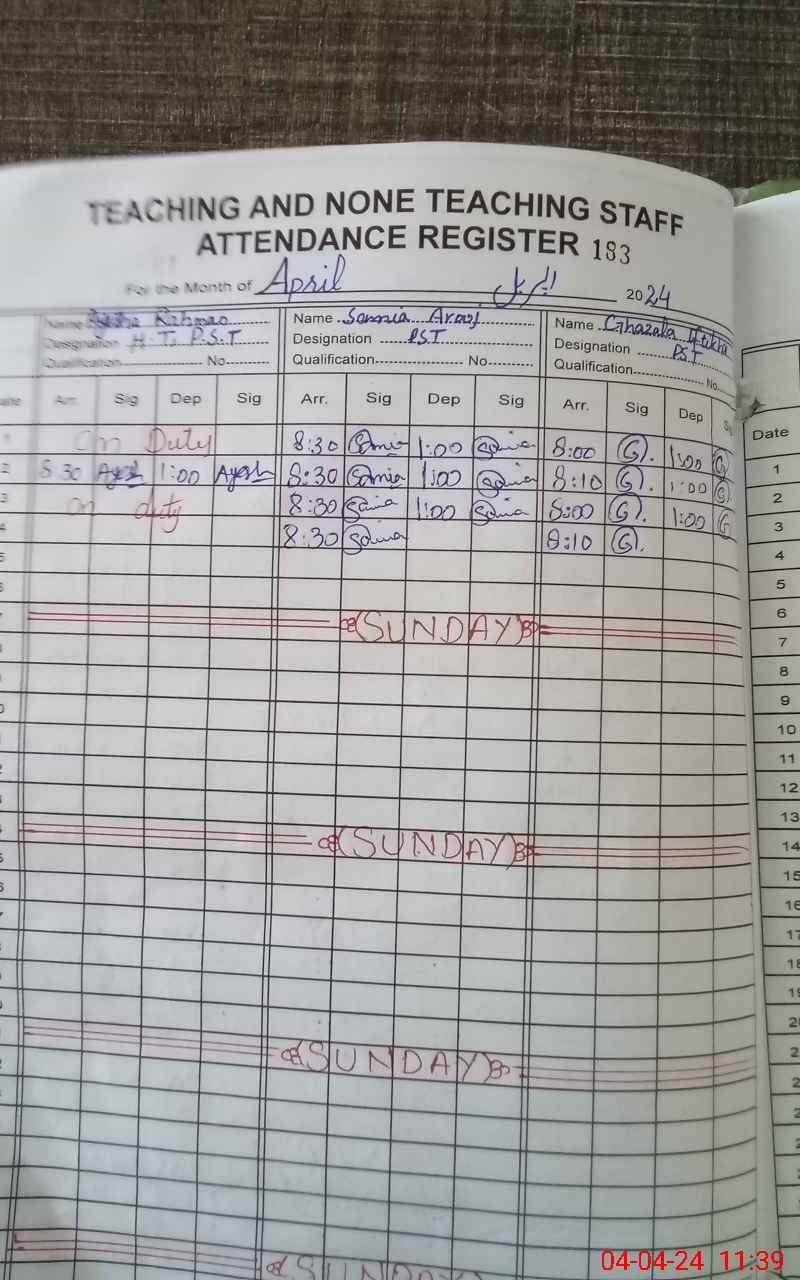 TEACHING AND NONE TEACHING STAFF
ATTENDANCE REGISTER 183
For the Month of April اپریل 2024
Name Rahman Name Samia Name Ghazala
Designation H.T. P.S.T Designation PST Designation P.S.T
Qualification No Qualification No Qualification No
Arr. Sig Dep Sig Arr. Sig Dep Sig Arr. Sig Dep Date
On Duty 8:30 Samia 1:00 Samia 8:00 G. 1:00 G 1
2 8:30 Ayesh 1:00 Ayesh 8:30 Samia 1:00 Samia 8:10 G. 1:00 G 2
3 on duty 8:30 Samia 1:00 Samia 8:00 G. 1:00 G 3
8:30 Samia 8:10 G. 4
5 5
6 6
(SUNDAY) 7
8
9
10
11
12
13
(SUNDAY) 14
15
16
17
(SUNDAY)
(SUNDAY
04-04-24 11:39